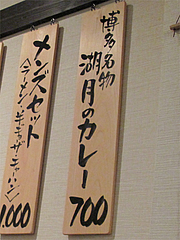 博多名物
湖月のカレー
700
メンズセット
(ラーメン・半ギョーザ・半チャーハン)
1.000